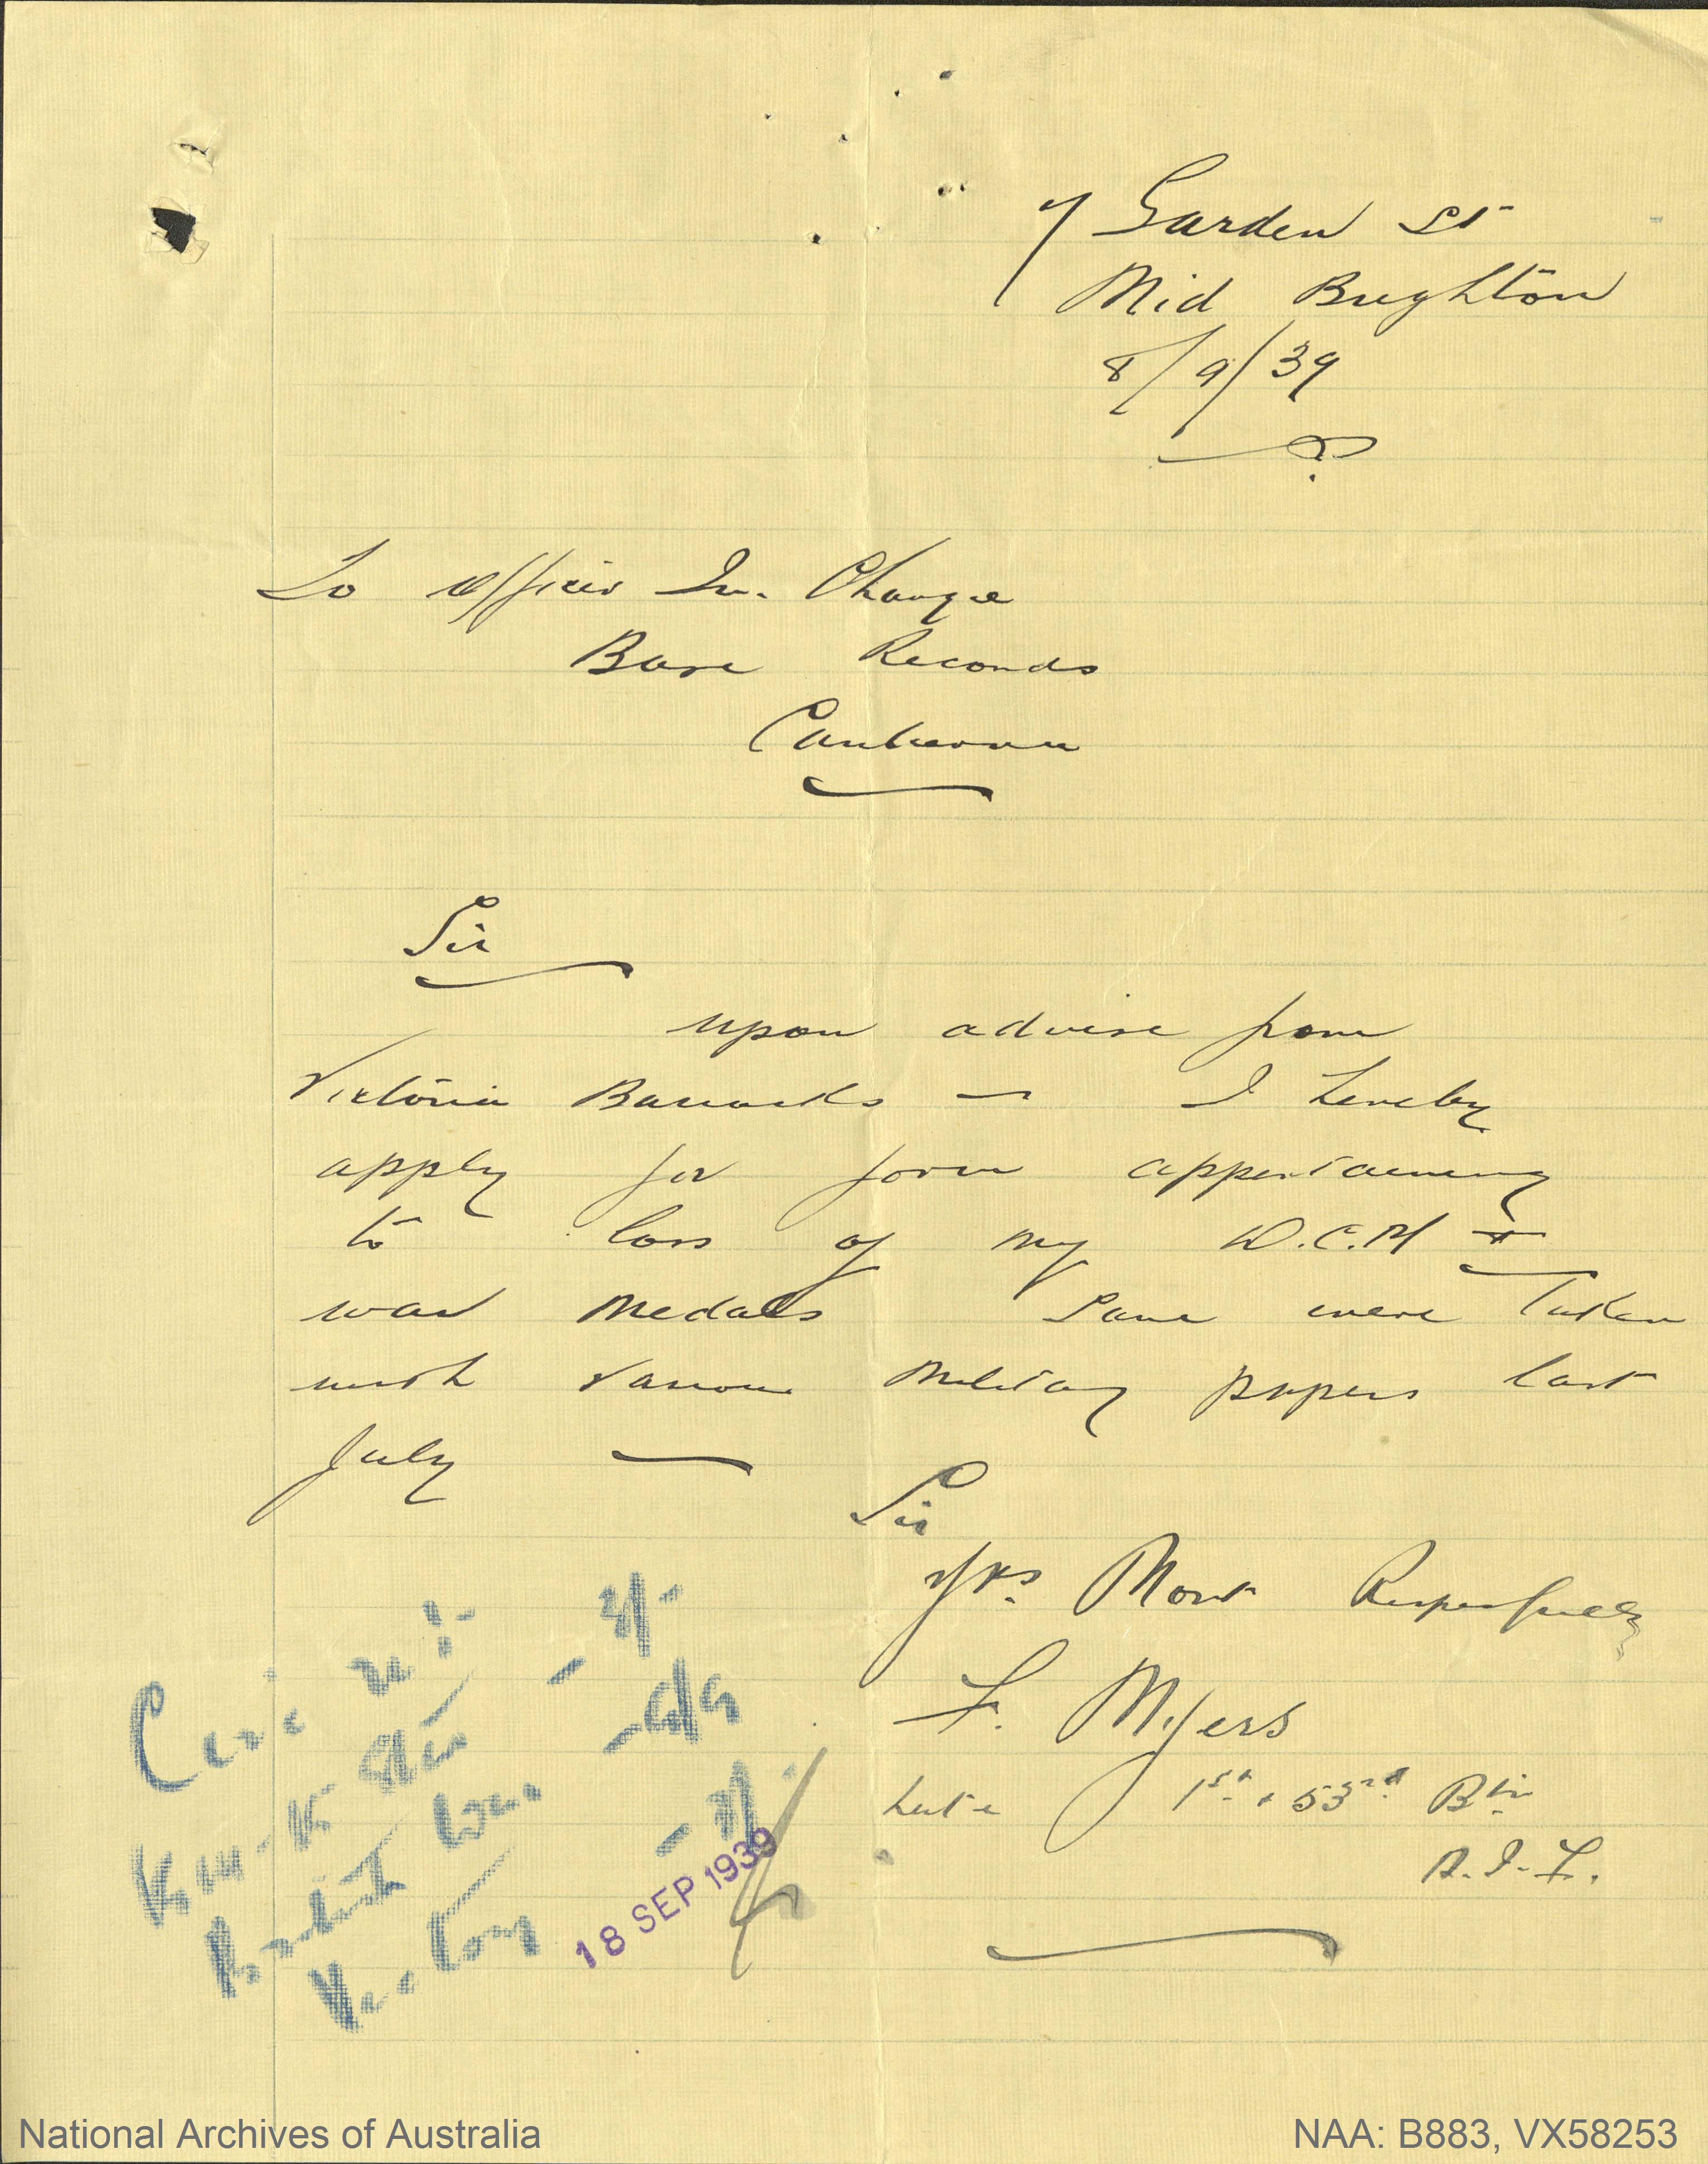 7 Garden St
Mid Brighton
8/9/39
To Officer In. Charge
Base Records
Canberra
Sir
upon advise from
Victoria Barracks — I hereby
apply for form appertaining
to loss of my D.C.M +
war Medals Same were Taken
with various Military papers last
July —
Sir
Yrs. Most Respectfully
F. Myers
Late 1st + 53rd Btn
A.I.F.
18 SEP 1939
National Archives of Australia
NAA: B883, VX58253